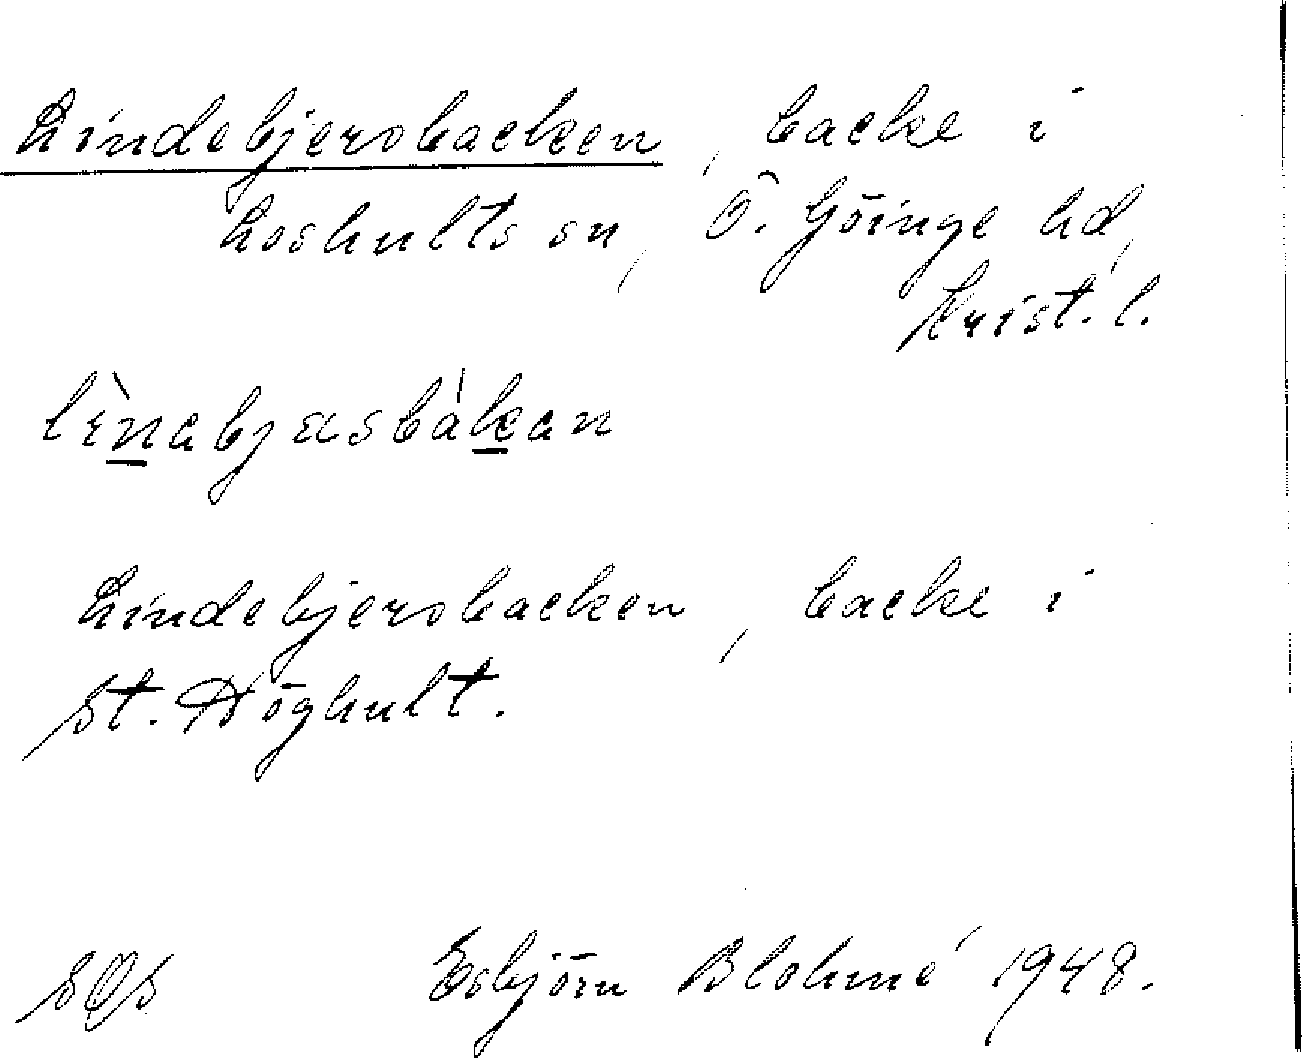 Lindebjersbacken, backe i
Loshults sn, Ö. Göinge hd,
Krist. l.
Lindebjersbacken, backe i
St. Höghult.
Esbjörn Blohmé 1948.